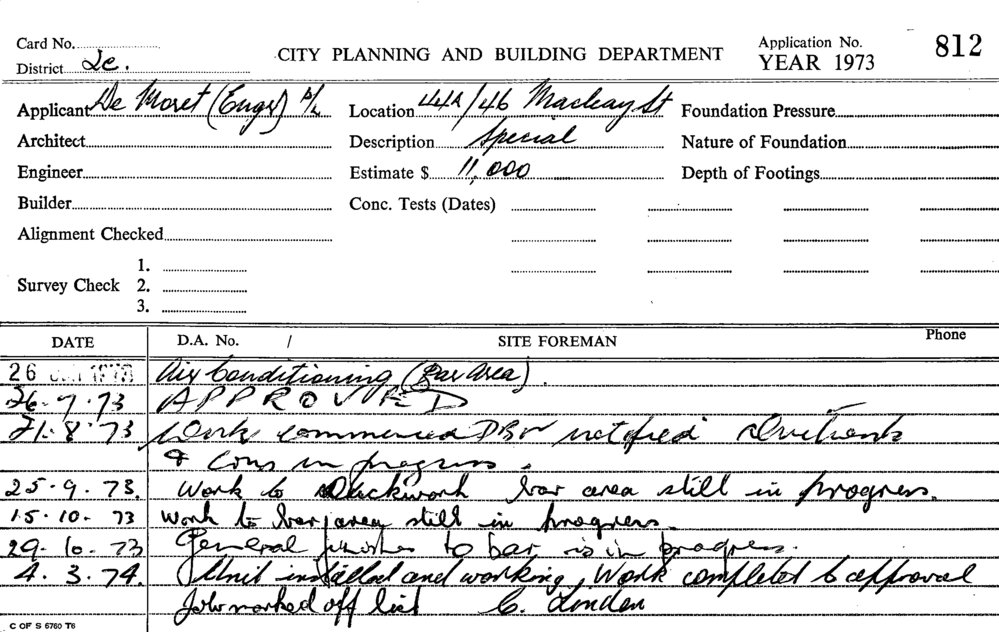 Card No.
CITY PLANNING AND BUILDING DEPARTMENT
Application No. 812
District 2c.
YEAR 1973
Applicant De Moret (Engs) P/L Location 44A/46 Macleay St Foundation Pressure
Architect Description Special Nature of Foundation
Engineer Estimate $ 11,000 Depth of Footings
Builder Conc. Tests (Dates)
Alignment Checked
1.
Survey Check 2.
3.
DATE D.A. No. / SITE FOREMAN Phone
26 1973 Air Conditioning (Bar Area).
26.7.73 APPROVED
21.8.73 Work commenced DBW notified
& Cons in progress.
25.9.73. Work to Duckwork bar area still in progress.
15.10.73 Work to bar area still in progress.
29.10.73 General finishes to bar is in progress.
4.3.74. Unit installed and working, Work completed to approval
Job marked off list C. Linden
C OF S 6760 T6